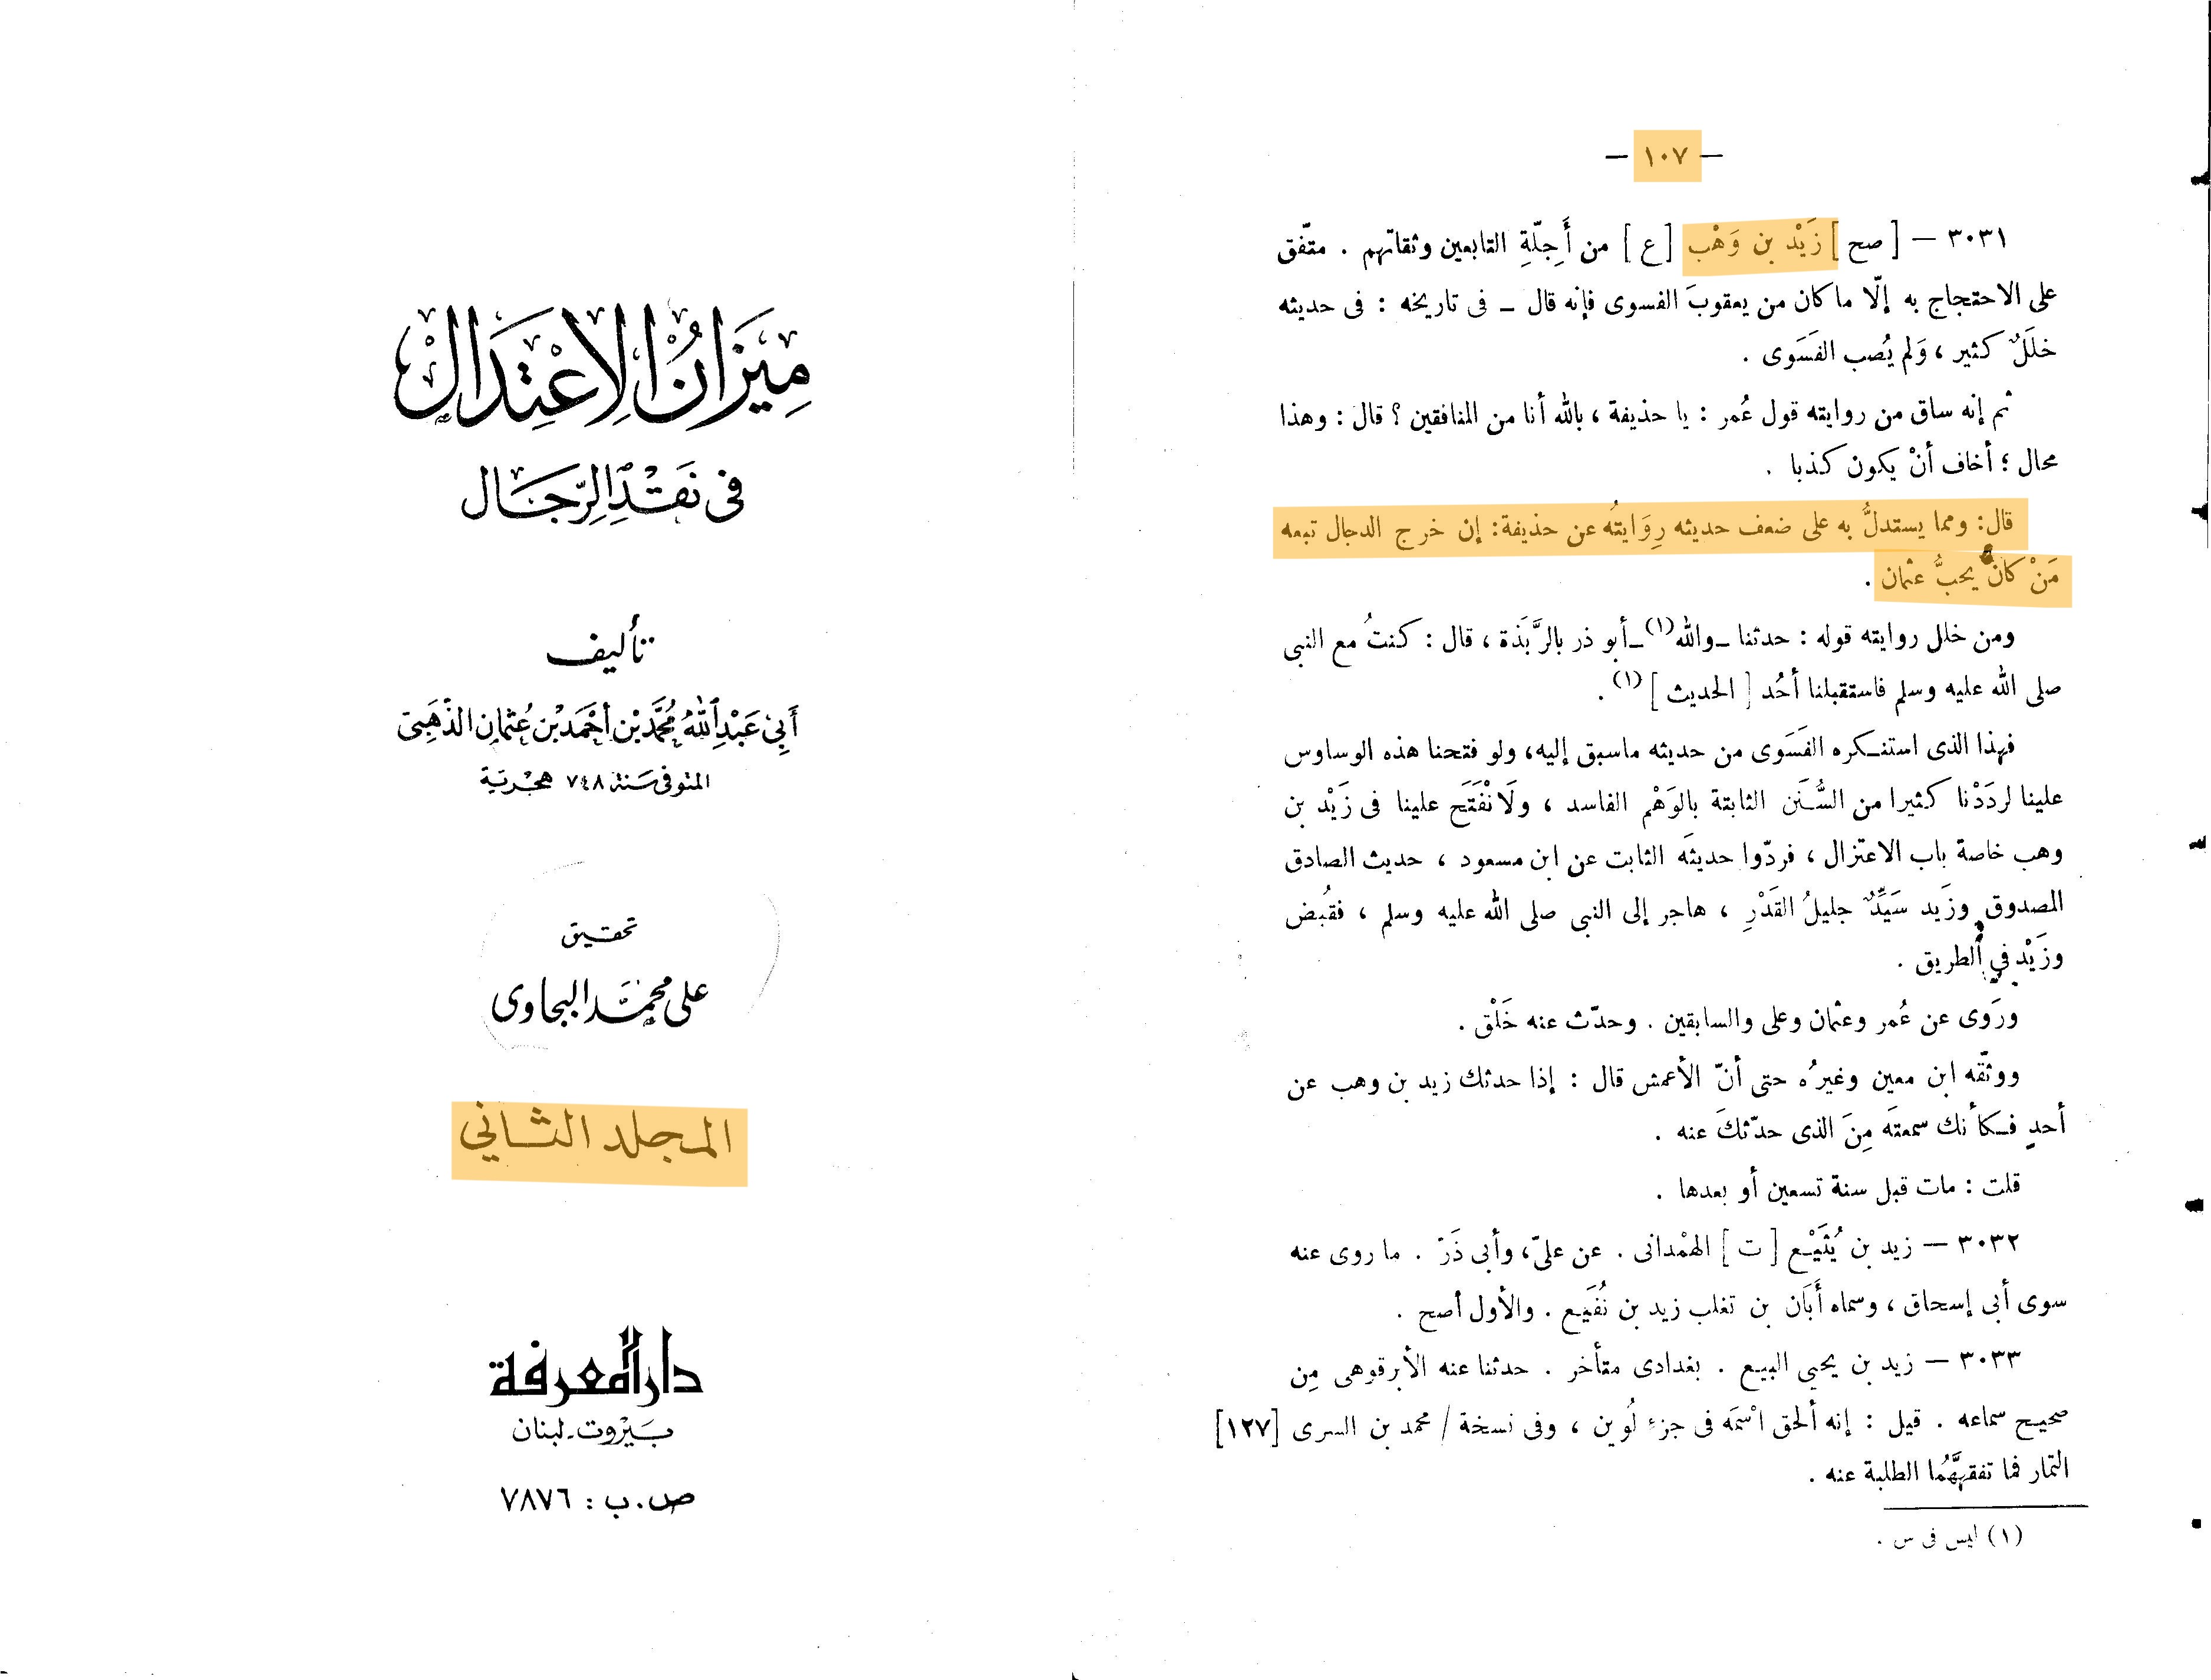 ميزان الاعتدال
فى نقد الرجال
تأليف
أبي عبد الله محمد بن أحمد بن عثمان الذهبي
المتوفى سنة ٧٤٨ هجرية
تحقيق
على محمد البجاوى
المجلد الثاني
دار المعرفة
بيروت - لبنان
ص.ب : ٧٨٧٦
— ١٠٧ —
٣٠٣١ — [ صح ] زَيْد بن وَهْب [ ع ] من أَجِلّةِ التابعين وثقاتهم . متّفق
على الاحتجاج به إلّا ما كان من يعقوبَ الفسوى فإنه قال – فى تاريخه : فى حديثه
خلَلٌ كثير ، وَلم يُصب الفَسَوى .
ثم إنه ساق من روايته قول عُمر : يا حذيفة ، بالله أنا من المنافقين ؟ قال : وهذا
محال ؛ أخاف أنْ يكون كذبا .
قال: ومما يستدلُّ به على ضعف حديثه رِوَايتُه عن حذيفة: إن خرج الدجال تبعه
مَنْ كان يحبُّ عثمان .
ومن خلل روايته قوله : حدثنا –والله(١)–أبو ذر بالرَّبَذة ، قال : كنتُ مع النبى
صلى الله عليه وسلم فاستقبلنا أحُد [ الحديث ](١) .
فهذا الذى استنكره الفَسَوى من حديثه ماسبق إليه، ولو فتحنا هذه الوساوس
علينا لردَدْنا كثيرا من السُّنَن الثابتة بالوَهْم الفاسد ، ولَانْفَتَح علينا فى زَيْد بن
وهب خاصة باب الاعتزال ، فردّوا حديثَه الثابت عن ابن مسعود ، حديث الصادق
المصدوق وزَيد سَيِّدٌ جليلُ القَدْرِ ، هاجر إلى النبى صلى الله عليه وسلم ، فقُبض
وزَيْد في الطريق .
ورَوَى عن عُمر وعثمان وعلى والسابقين . وحدّث عنه خَلْق .
ووثّقه ابن معين وغيرُه حتى أنّ الأعمش قال : إذا حدثك زيد بن وهب عن
أحدٍ فكأنك سمعتَه مِنَ الذى حدّثكَ عنه .
قلت : مات قبل سنة تسعين أو بعدها .
٣٠٣٢ — زيد بن يُثَيْع [ ت ] الهمْدانى . عن علىّ، وأبى ذَرّ . ما روى عنه
سوى أبى إسحاق ، وسماه أَبَان بن تغلب زيد بن نُفَيع . والأول أصح .
٣٠٣٣ — زيد بن يحيي البيع . بغدادى متأخر . حدثنا عنه الأبرقوهى مِن
صحيح سماعه . قيل : إنه ألحق اسْمَه فى جزءِ لُوين ، وفى نسخة / محمد بن السرى [١٢٧]
التمار فما تفقهَّمُا الطلبة عنه .
(١) ليس فى س .